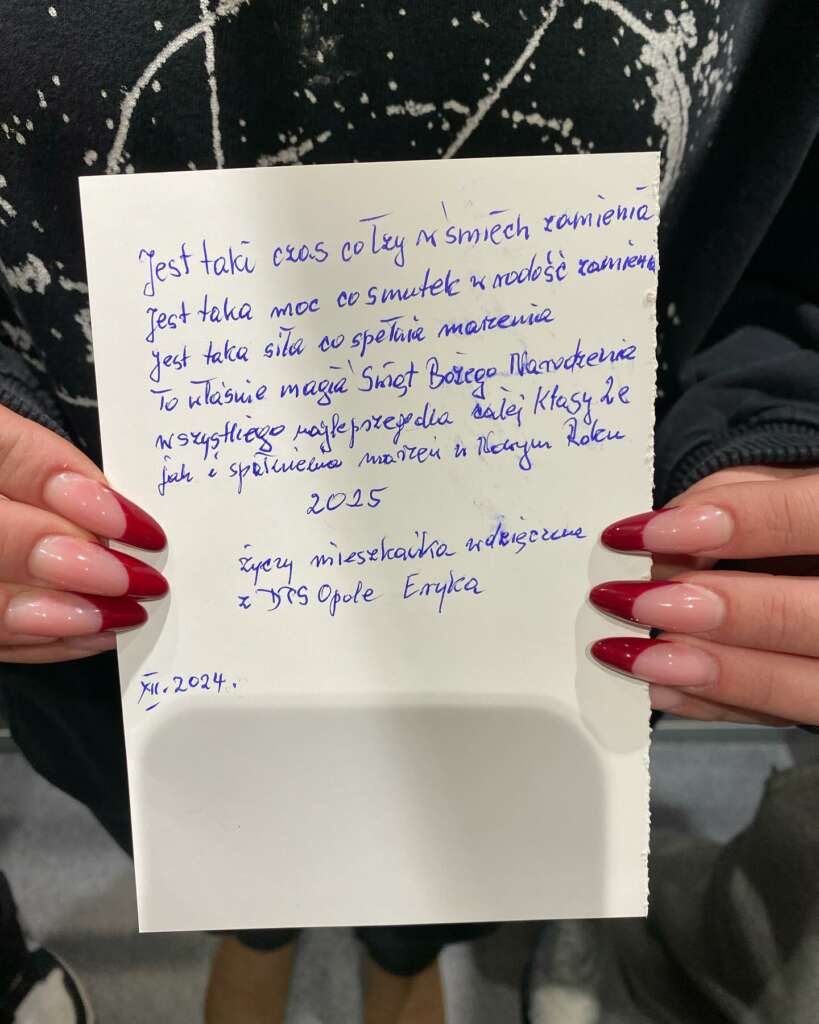 Jest taki czas co łzy w śmiech zamienia
Jest taka moc co smutek w rodość zamienia
Jest taka siła co spełnia marzenia
To właśnie magia Świąt Bożego Narodzenia
wszystkiego najlepszego dla całej Klasy 2e
jak i spełnienia marzeń w Nowym Roku
2025
życzy mieszkańka wdzięczna
z DPS Opole Eryka
XII.2024.